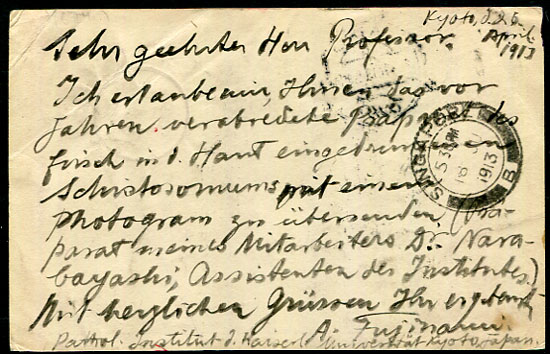 Kyoto, d. 26.
April
1913
Sehr geehrter Herr Professor.
Ich erlaube mir, Ihnen das vor
Jahren verabredete Präparat des
frisch in d. Haut eingedrungenen
Schistosomums mit einem
Photogram zu übersenden (Prä-
parat meines Mitarbeiters Dr. Nara-
bayashi, Assistenten des Institutes)
Mit herzlichen Grüssen Ihr ergebenster
A. Fujinami.
Pathol. Institut d. Kaiserl. Universität Kyoto, Japan.
SINGAPORE
B
5 30 PM
1913